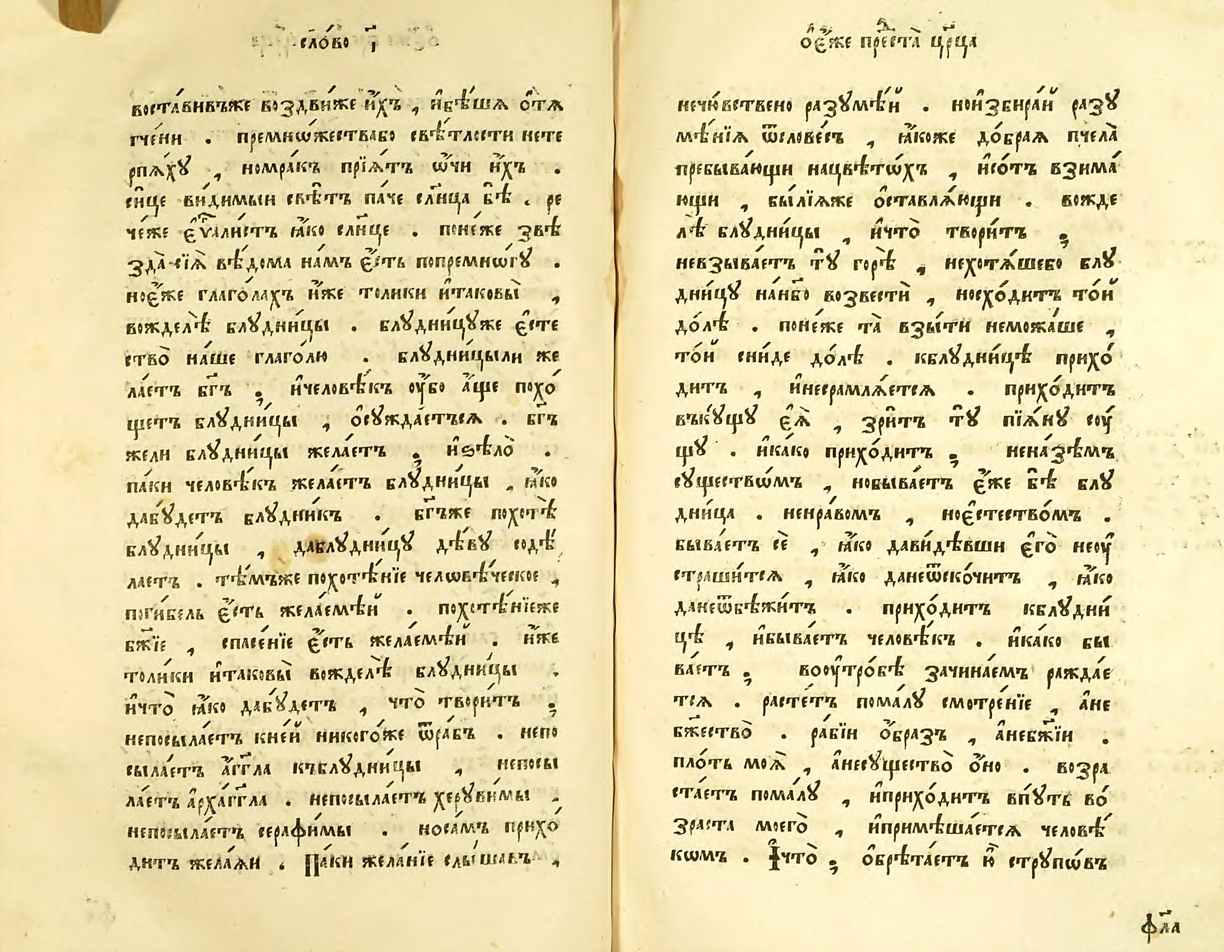 сло́во г҃
воста́вивъже воздви́же и҆́хъ , и҆бѣ́шѧ ѻ҆тѧ
гче́ни . премно́жествабо свѣ́тлости нете
рпѧ́хꙋ , номра́къ прїѧ́тъ ѡ҆́чи и҆́хъ .
си́це ви́димыи свѣ́тъ па́че сл҃нца бѣ̀ . ре
че́же є҆ѵⷢ҇али́стъ ꙗ҆́ко сл҃нце . поне́же звѣ
зда̀ сїѧ̀ вѣ́дома на́мъ є҆́сть попремно́гꙋ .
ноє҆́же глаго́лахъ и҆́же толи́ки и҆таковы̀ ,
вожделѣ̀ блꙋдни́цы . блꙋдни́цꙋже є҆сте
ство̀ на́ше глаго́лю . блꙋдни́цыли же
ла́етъ бг҃ъ ; и҆человѣ́къ ᲂу҆́бо а҆́ще похо́
щетъ блꙋдни́цы , ѻ҆сꙋжда́етъсѧ . бг҃ъ
жели блꙋдни́цы жела́етъ ; и҆ѕѣлѡ̀ .
па́ки человѣ́къ жела́етъ блꙋдни́цы , ꙗ҆́ко
дабꙋ́детъ блꙋдни́къ . бг҃ъже похотѣ̀
блꙋдни́цы , даблꙋдни́цꙋ дѣ́вꙋ содѣ́
лаетъ . тѣ́мъже похотѣ́нїе челѡвѣ́ческое ,
поги́бель є҆́сть жела́емѣй . похотѣ́нїеже
бж҃їе , спасе́нїе є҆́сть жела́емѣй . и҆́же
толи́ки и҆таковы̀ вожделѣ̀ блꙋдни́цы .
и҆что̀ ꙗ҆́ко дабꙋ́детъ , что̀ твори́тъ ;
непосыла́етъ кне́й никого́же ѿра́бъ . непо
сыла́етъ а҆́гг҃ла къблꙋдни́цы , непосы
ла́етъ а҆рха́гг҃ла . непосыла́етъ херꙋви́мы .
непосыла́етъ серафи́мы . носа́мъ прихо́
дитъ жела́ѧи . Па́ки жела́нїе слы́шавъ ,
ѻ҆є҆́же прⷣе́ста црⷪ҇ца
нечю́вствено разꙋмѣ́й . нои҆збира́й разꙋ
мѣ́нїѧ ѿслове́съ , ꙗ҆́коже до́браѧ пчела̀
пребыва́ющи нацвѣ́тѡхъ , и҆со́тъ взима́
ющи , бы́лїѧже ѻ҆ставлѧ́ющи . вожде
лѣ̀ блꙋдни́цы , и҆что̀ твори́тъ ;
невзыва́етъ тꙋ̀ горѣ̀ , нехотѧ́шебо блꙋ
дни́цꙋ нан҃бо возвестѝ , носхо́дитъ то́й
до́лѣ . поне́же та̀ взы́ти неможа́ше ,
то́й сни́де до́лѣ . кблꙋдни́цѣ прихо́
дитъ , и҆несрамлѧ́етсѧ . прихо́дитъ
въкꙋ́щꙋ є҆ѧ̀ , зри́тъ тꙋ̀ пїѧ́нꙋ сᲂу́
щꙋ . и҆ка́ко прихо́дитъ ; нена́зѣмъ
сꙋществѡ́мъ , нобыва́етъ є҆́же бѣ̀ блꙋ
дни́ца . ненра́вомъ , ноє҆стество́мъ .
быва́етъ сѐ , ꙗ҆́ко дави́дѣвши є҆го̀ неᲂу҆
страши́тсѧ , ꙗ҆́ко данеѿско́читъ , ꙗ҆́ко
данеѿбѣжи́тъ . прихо́дитъ кблꙋдни́
цѣ , и҆быва́етъ человѣ́къ . и҆ка́ко бы
ва́етъ ; воᲂу҆тро́бѣ зачина́емъ ражда́е
тсѧ . расте́тъ пома́лꙋ смотре́нїе , а҆не
бж҃ество̀ . ра́бїи ѻ҆́бразъ , а҆небж҃їи .
пло́ть моѧ̀ , а҆несꙋщество̀ ѻ҆но̀ . возра
ста́етъ пома́лꙋ , и҆прихо́дитъ впꙋ́ть во́
зраста моего̀ , и҆примѣша́етсѧ человѣ́
кѡмъ . І҆что̀ ; ѻ҆брѣта́етъ ю҆̀ стрꙋпѡ́въ
фл҃а